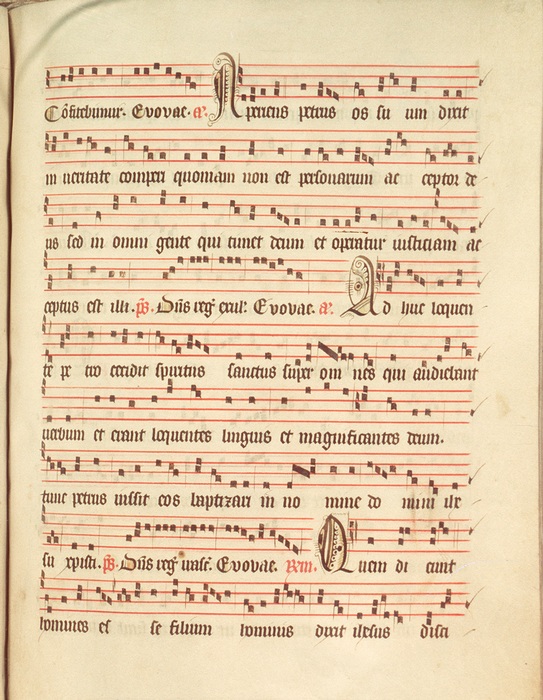 Cōfitebimur. Evovae. a. Aperiens petrus os su um dixit
in ueritate comperi quoniam non est personarum ac ceptor de
us sed in omni gente qui timet deum et operatur iusticiam ac
ceptus est illi. ps. Dn̄s reg̛ exul: Evovae. a. Ad huc loquen
te pe tro cecidit spiritus sanctus super om nes qui audiebant
uerbum et erant loquentes linguis et magnificantes deum.
tunc petrus iussit eos baptizari in no mine do mini ihe
su xpisti. ps. Dn̄s reg̛ irasc̄. Evovae. Quem di cunt
homines es se filium hominis dixit ihesus disci